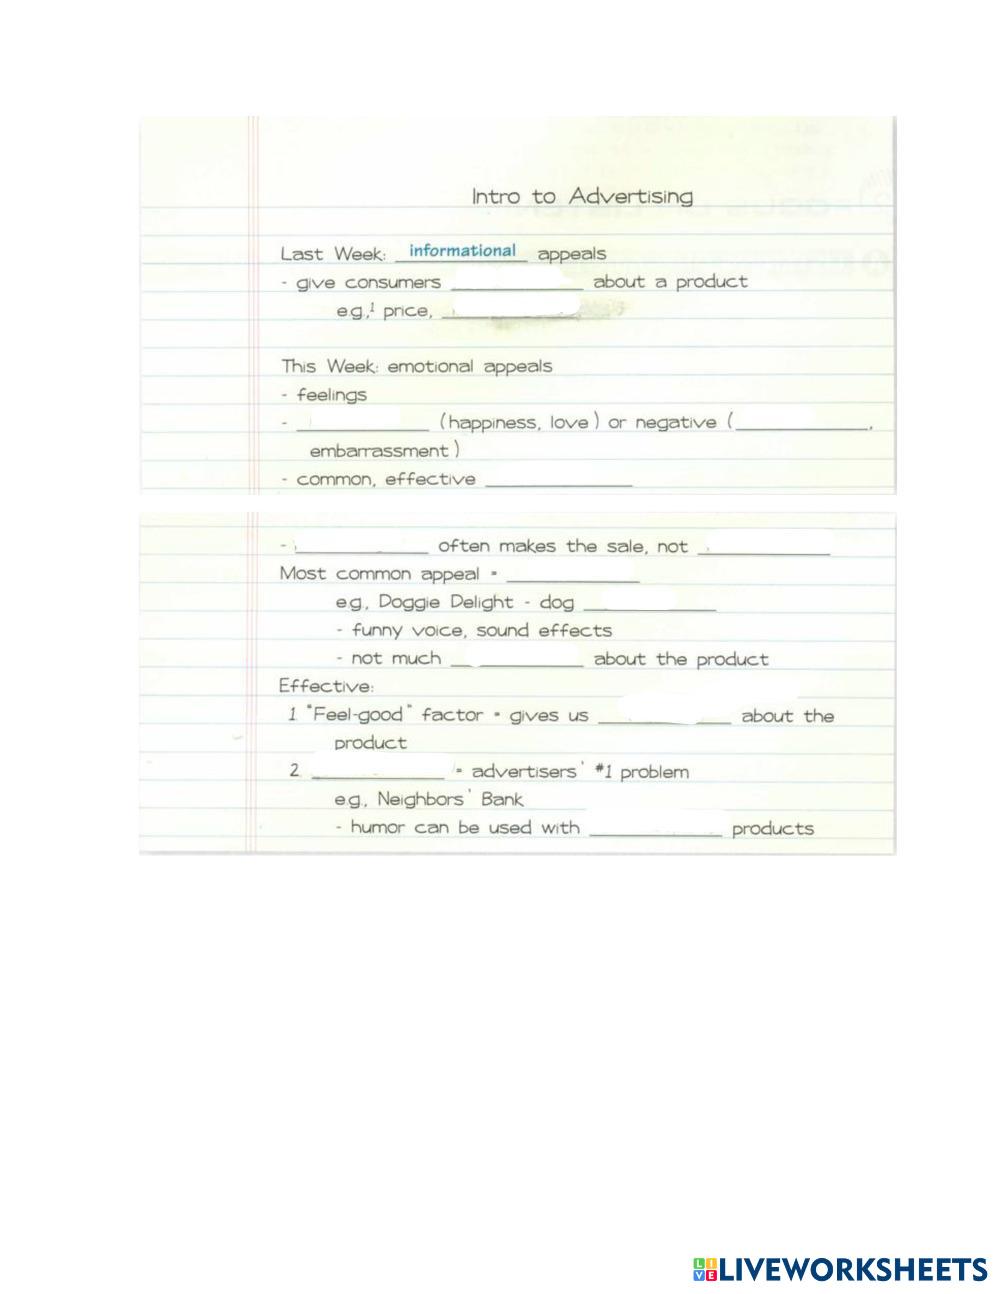 Intro to Advertising
Last Week: informational appeals
- give consumers ____________ about a product
e.g.,1 price, ____________
This Week: emotional appeals
- feelings
- ____________ (happiness, love) or negative (____________,
embarrassment)
- common, effective ____________
- ____________ often makes the sale, not ____________
Most common appeal = ____________
e.g., Doggie Delight - dog ____________
- funny voice, sound effects
- not much ____________ about the product
Effective:
1. "Feel-good" factor = gives us ____________ about the
product
2. ____________ = advertisers' #1 problem
e.g., Neighbors' Bank
- humor can be used with ____________ products
LIVEWORKSHEETS